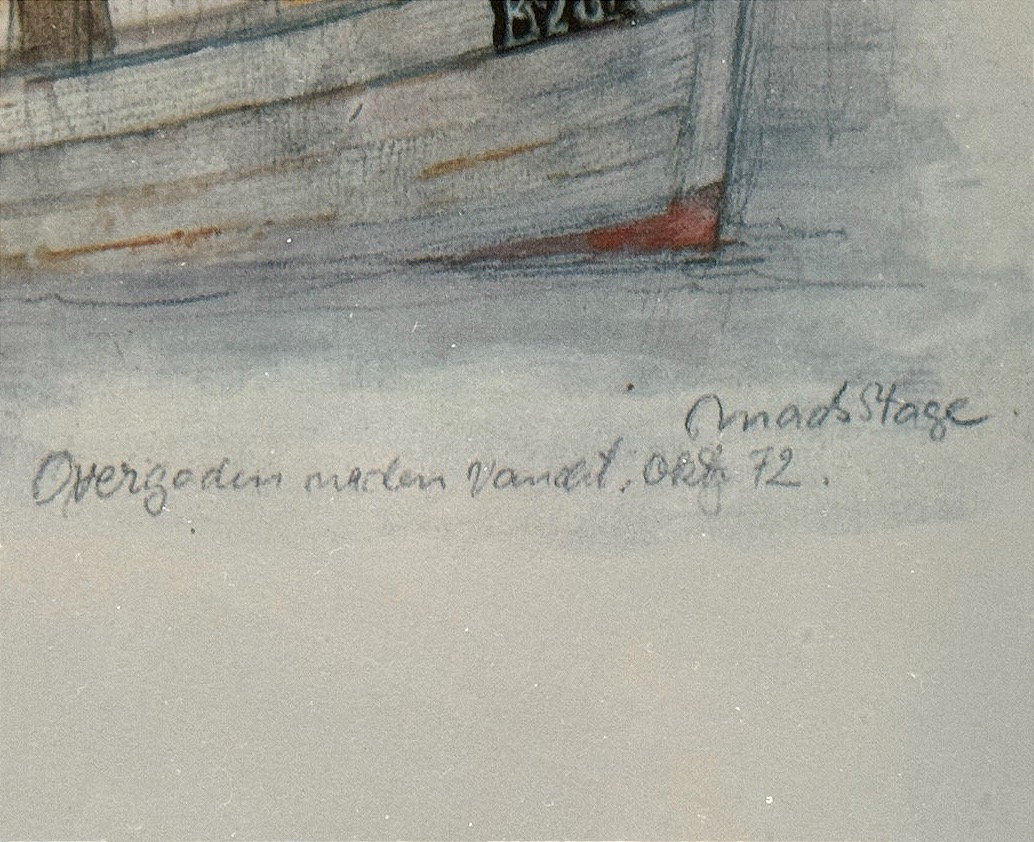 Mads Stage
Overgaden neden Vandet. Okt. 72.